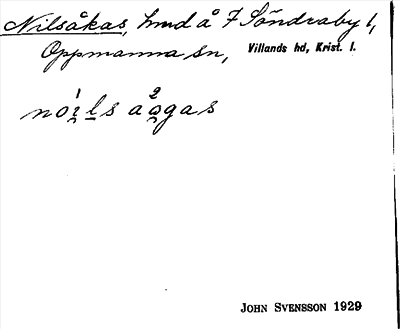 Nilsåkas, hmd å 7 Söndraby 1,
Oppmanna sn, Villands hd, Krist. l.
noi̯l̲s aa̯gas
1 2
JOHN SVENSSON 1929